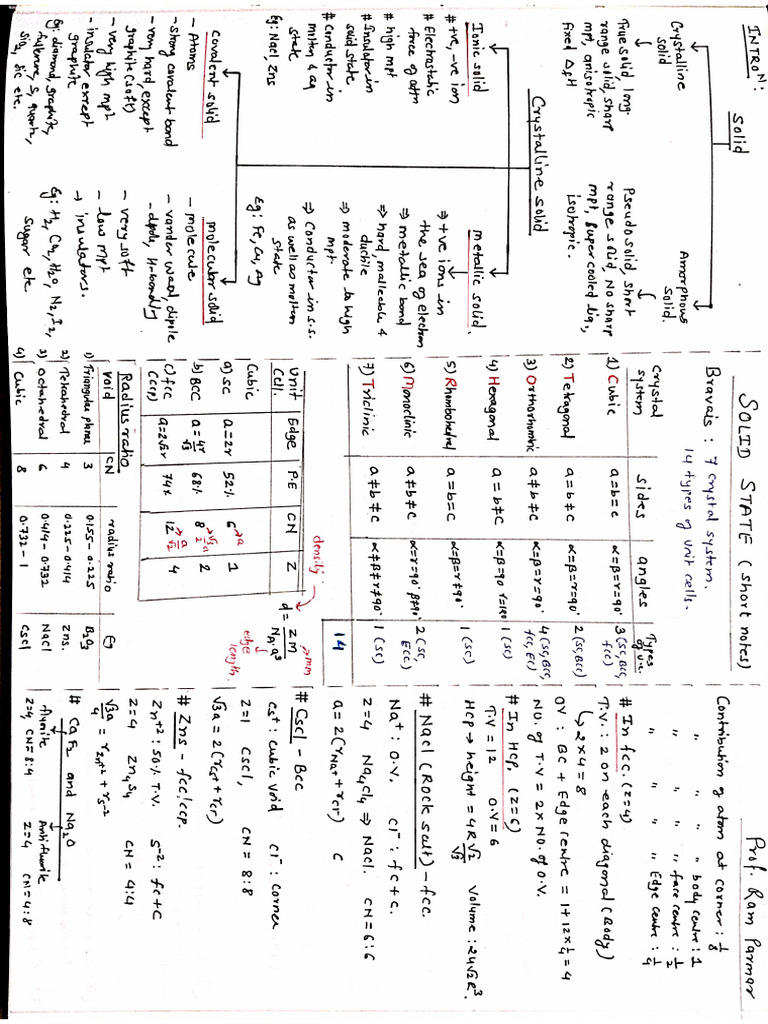 SOLID STATE (short notes)
Prof. Ram Parmar
INTRON:
Solid
Crystalline solid
True solid, long range solid, sharp mpt, anisotropic
fixed ΔfH
Amorphous solid.
Pseudo solid, short range solid, No sharp mpt, super cooled liq, isotropic.
Crystalline solid
Ionic solid
# +ve, -ve ion
# Electrostatic force of attn
# high mpt
# Insulator in solid state
# Conductor in molten & aq state
Eg: Nacl, Zns
metallic solid.
⇒ +ve ions in the sea of electron
⇒ metallic bond
⇒ hard, malleable & ductile
⇒ moderate to high mpt
⇒ Conductor in s.s. as well as molten state
Eg: Fe, Cu, Ag
covalent solid
- Atoms
- strong covalent bond
- very hard, except graphite (soft)
- very high mpt
- insulator except graphite
Eg: diamond, graphite, fullerene, S, quartz, SiO2, Sic etc.
molecular solid
- molecule
- vander waal, dipole - dipole, H-bonding
- very soft
- low mpt
→ insulators.
Eg: H2, Cl2, H2O, N2, I2, sugar etc
Bravais : 7 crystal system.
14 types of unit cells.
Crystal system sides angles Types of u.c.
1) Cubic a=b=c α=β=r=90° 3 (SC, BCC, fcc)
2) Tetragonal a=b≠c α=β=r=90° 2 (SC, BCC)
3) Orthorhombic a≠b≠c α=β=r=90° 4 (SC, BCC, fcc, EC)
4) Hexagonal a=b≠c α=β=90 r=120 1 (SC)
5) Rhombohedral a=b=c α=β=r≠90° 1 (SC)
6) Monoclinic a≠b≠c α=r=90° β≠90° 2 (SC, ECC)
7) Triclinic a≠b≠c α≠β≠r≠90° 1 (SC)
14
Unit Cell. Edge P.E CN Z
Cubic
a) SC a=2r 52% 6→a 1
b) BCC a=4r/√3 68% 8→√3a/2 2
c) fcc (ccp) a=2√2r 74% 12→a/√2 4
density
d = ZM/NA·a³
edge length.
Radius ratio
Void CN radius ratio Eg
1) Triangular planar 3 0.155-0.225 B2O3
2) Tetrahedral 4 0.225-0.414 Zns.
3) Octahedral 6 0.414-0.732 Nacl
4) Cubic 8 0.732-1 Cscl
Contribution of atom at corner : 1/8
" " " " body centre : 1
" " " " face centre : 1/2
" " " " Edge centre : 1/4
# In fcc. (z=4)
T.V. : 2 on each diagonal (Body)
↳ 2×4=8
OV : BC + Edge centre = 1+12×1/4 = 4
NO. of T.V = 2× NO. of O.V.
# In Hcp. (z=6)
T.V = 12 O.V = 6
Hcp → height = 4R√2/√3 Volume : 24√2R³
# Nacl (Rock salt) - fcc.
Na+ : O.V. cl- : fc + c.
Z=4 Na4cl4 ⇒ Nacl. CN = 6:6
a=2(rNa+ + rcl-)
# Cscl - Bcc
Cs+ : Cubic void cl- : Corner
Z=1 cscl, CN = 8:8
√3a = 2(rcs+ + rcl-)
# Zns - fcc/ccp.
Zn+2 : 50% T.V. S-2 : fc + C
Z=4 Zn4S4 CN = 4:4
√3a/4 = rZn+2 + rS-2
# CaF2 and Na2O
fluorite Antifluorite
Z=4, CN=8:4 Z=4 CN=4:8